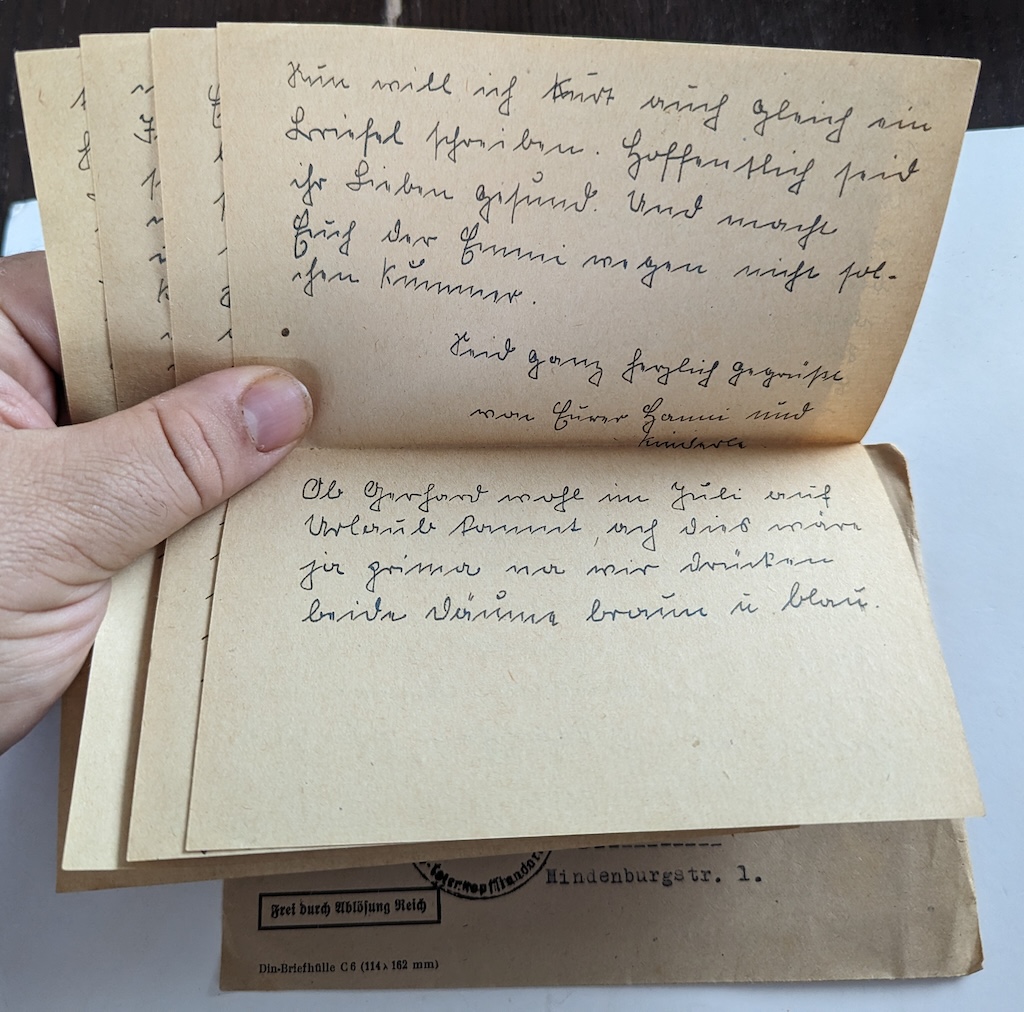 Nun will ich Kurt auch gleich ein
Briefel schreiben. Hoffentlich seid
ihr Lieben gesund. Und macht
Euch der Emmi wegen nicht sol-
chen Kummer.
Seid ganz herzlich gegrüßt
von Eurer Hanni und
Kinderle
Ob Gerhard wohl im Juli auf
Urlaub kommt, ach dies wäre
ja prima na wir drücken
beide Däume braun u blau.
Hindenburgstr. 1.
Frei durch Ablösung Reich
Din-Briefhülle C 6 (114 x 162 mm)